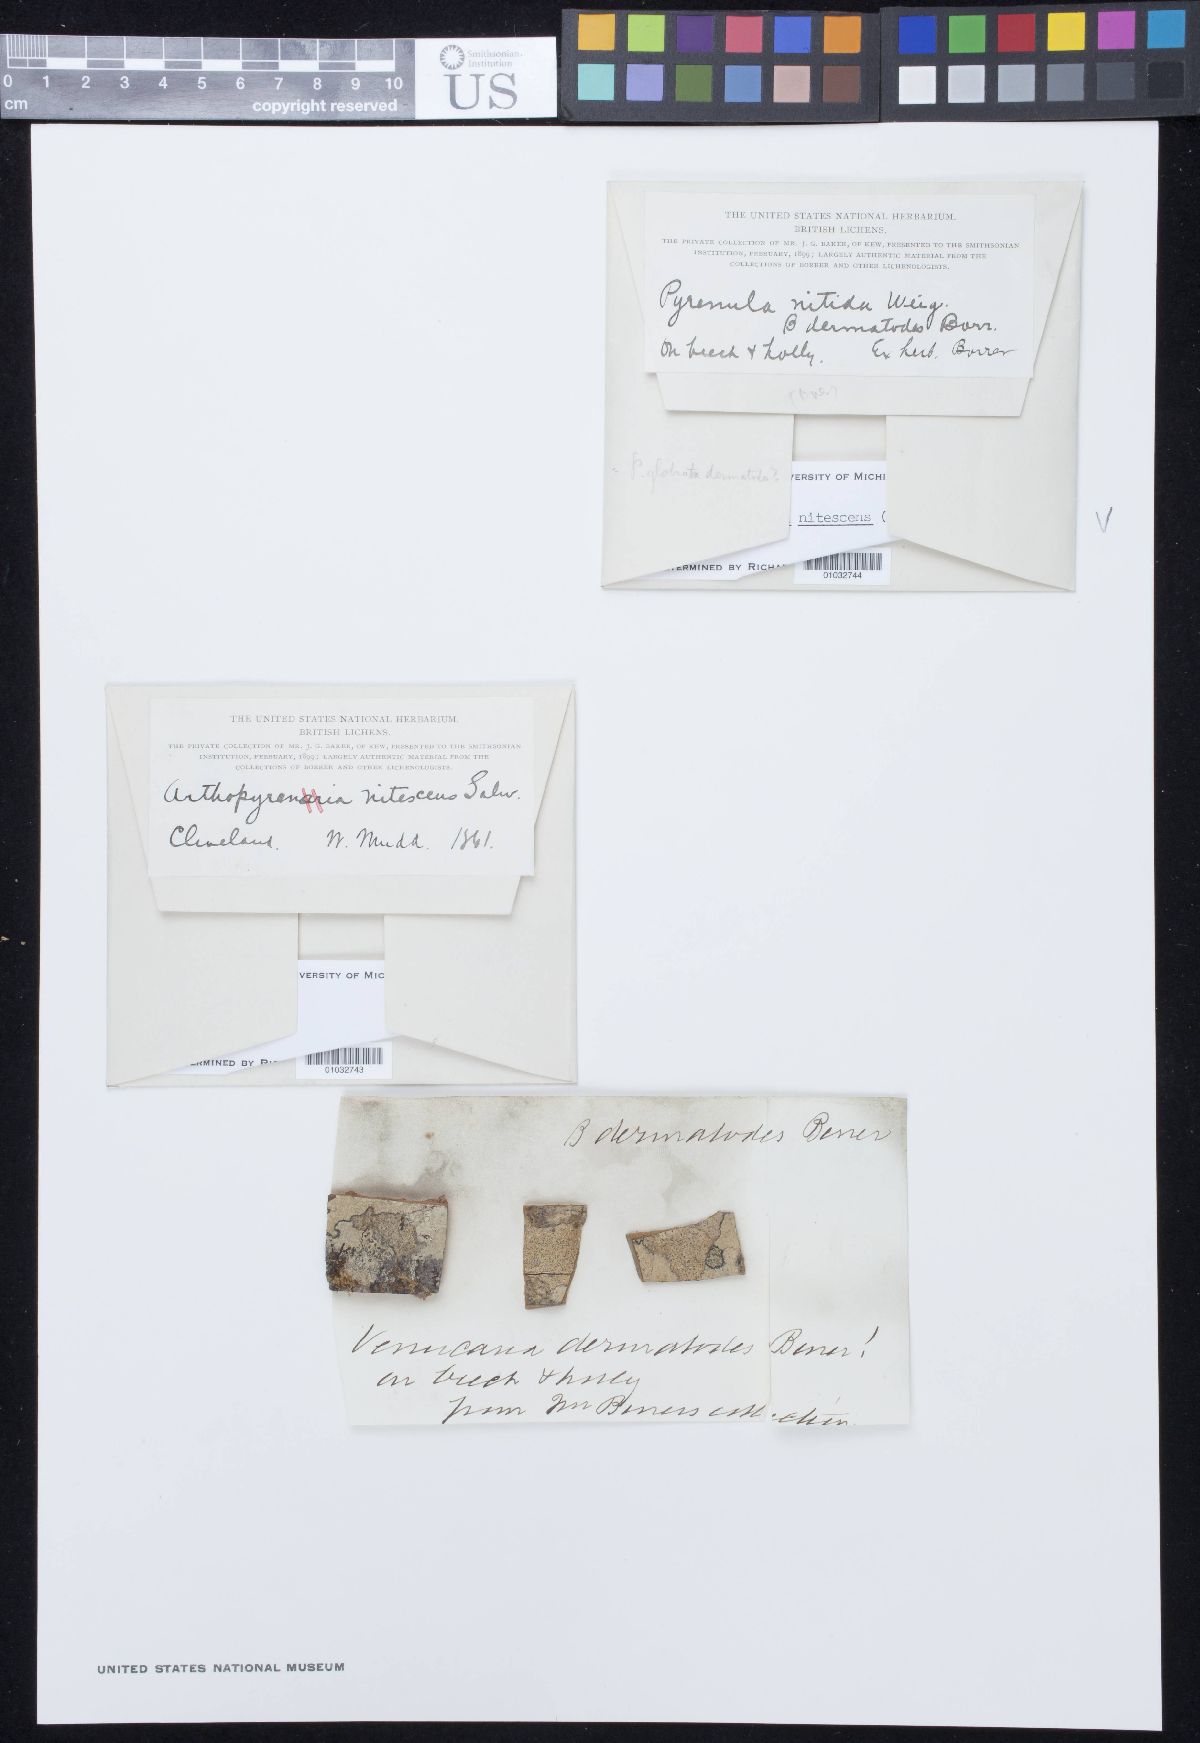 0 1 2 3 4 5 6 7 8 9 10
cm
copyright reserved
Smithsonian
Institution
US
THE UNITED STATES NATIONAL HERBARIUM.
BRITISH LICHENS.
THE PRIVATE COLLECTION OF MR. J. G. BAKER, OF KEW, PRESENTED TO THE SMITHSONIAN
INSTITUTION, FEBRUARY, 1899; LARGELY AUTHENTIC MATERIAL FROM THE
COLLECTIONS OF BORRER AND OTHER LICHENOLOGISTS.
Pyrenula nitida Weig.
β dermatodes Borr.
On beech & holly. Ex herb. Borrer
= P. glabrata dermatodes?
VERSITY OF MICHI
nitescens (
TERMINED BY RICHA
01032744
V
THE UNITED STATES NATIONAL HERBARIUM.
BRITISH LICHENS.
THE PRIVATE COLLECTION OF MR. J. G. BAKER, OF KEW, PRESENTED TO THE SMITHSONIAN
INSTITUTION, FEBRUARY, 1899; LARGELY AUTHENTIC MATERIAL FROM THE
COLLECTIONS OF BORRER AND OTHER LICHENOLOGISTS.
Arthopyrenaria nitescens Salw.
Cleveland. W. Mudd. 1861.
VERSITY OF MIC
ERMINED BY RI
01032743
β dermatodes Borrer
Verrucaria dermatodes Borrer!
on beech & holly
from Mr Borrers collection.
UNITED STATES NATIONAL MUSEUM